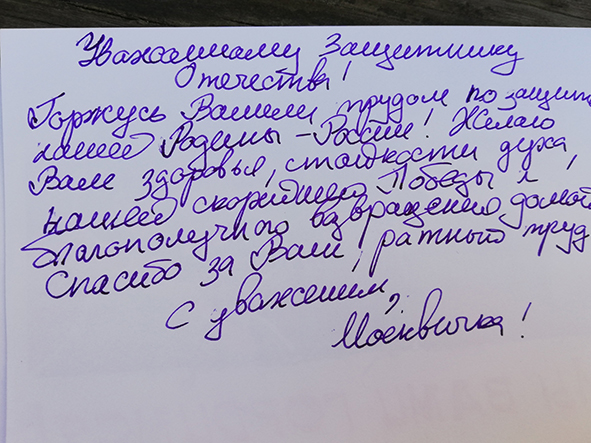 Уважаемому Защитнику
Отечества!
Горжусь Вашим трудом по защите
нашей Родины – России! Желаю
Вам здоровья, стойкости духа,
нашей скорейшей Победы и
благополучного возвращения домой
Спасибо за Ваш, ратный труд
С уважением,
Москвичка!